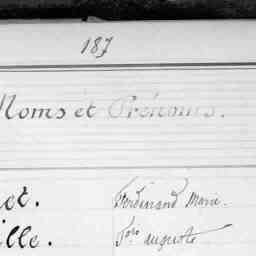 187
Noms et Prénoms.
et. Ferdinand Marie.
ille. auguste